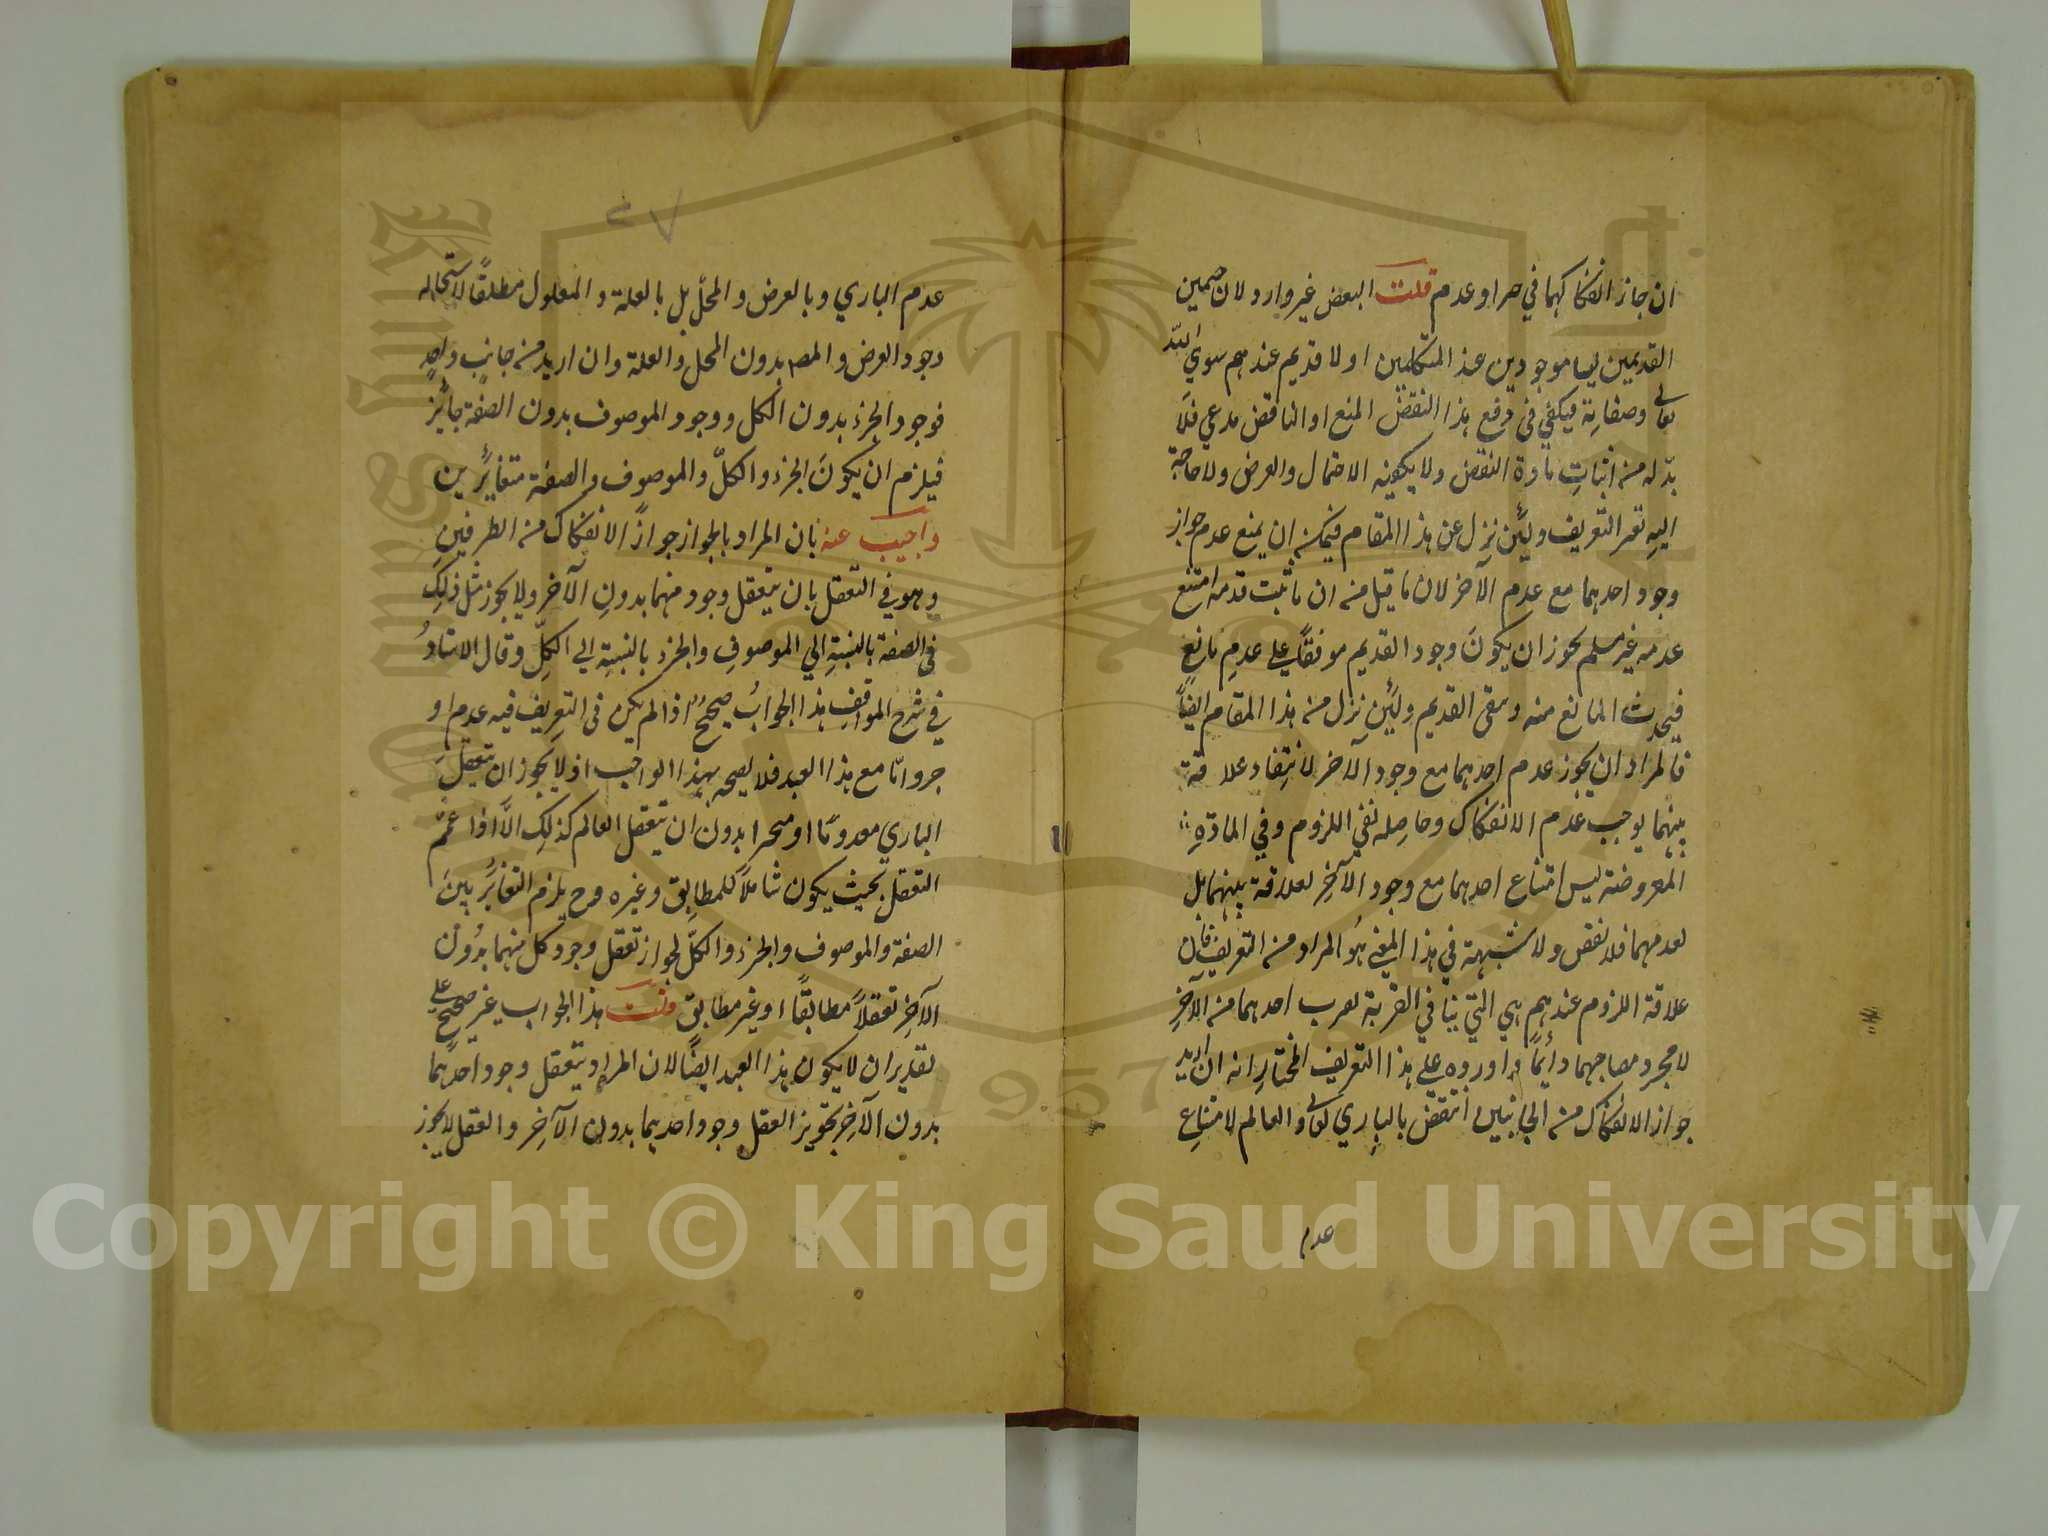 ان جاز انفكاكهما في حيز او عدم قلت البعض غير وارد ولان جسمين
القديمين ليسا موجودين عند المتكلمين اولا قديم عندهم سوي الله
تعالى وصفاته فيكفي في دفع هذا النقض المنع او الناقض مدعي فلا
بدّ له من اثبات مادة النقض ولا يكفيه الاحتمال والفرض ولا حاجة
اليه التعريف ولئن نزل عن هذا المقام فيمكنه ان يمنع عدم جواز
وجود احدهما مع عدم الآخر لان ما قيل من ان ما ثبت قدمه امتنع
عدمه غير مسلم لجوز ان يكون وجود القديم موقفا على عدم مانع
فيحدث المانع منه وينفى القديم ولئن نزل من هذا المقام ايضاً
فالمراد ان يجوز عدم احدهما مع وجود الآخر لانتفاء علاقة
بينهما يوجب عدم الانفكاك وحاصله نفي اللزوم وفي المادّة
المعروضة ليس امتناع احدهما مع وجود الآخر لعلاقة بينهما بل
لعدمهما فلا نقض ولا شبهة في هذا المعنى هو المراد من التعريف فان
علاقة اللزوم عندهم هي التي ينافي القربة لعرب احدهما من الآخر
لا مجرد مصاحبهما دائماً واوردوه على هذا التعريف المختار انه ان اريد
جواز الانفكاك من الجانبين انتقض بالباري تعالى والعالم لامتناع
عدم
٢٧
عدم الباري وبالعرض والمحلّ بل بالعلة والمعلول مطلقاً لاستحالة
وجود العرض والمعه بدون المحل والعلة وان اريد من جانب واحد
فوجود الجزء بدون الكل ووجود الموصوف بدون الصفة جائز
فيلزم ان يكون الجزء والكلّ والموصوف والصفة متغايرين
واجيب عنه بان المراد بالجواز جوازُ الانفكاك من الطرفين
وهو في التعقل بان يتعقل وجود منهما بدون الآخر ولا يجوز مثل ذلك
في الصفة بالنسبة الي الموصوف والجزء بالنسبة الي الكلّ وقال الاستاذُ
في شرح المواقف هذا الجوابُ صحيحٌ اذا لم يكن في التعريف قيد عدم او
حيز وامّا مع هذا القيد فلا يصح بهذا الواجب اذ لا يجوز ان يتعقل
الباري معدوماً او متحيزا بدون ان يتعقل العالم كذلك الاّ اذا عمّم
التعقل بحيث يكون شاملاً للمطابق وغيره وح يلزم التغاير بين
الصفة والموصوف والجزء والكلّ لجواز تعقل وجود كل منهما بدون
الآخر تعقلاً مطابقاً او غير مطابق قلت هذا الجواب غير صحيح على
تقدير ان لا يكون هذا القيد ايضاً لان المراد بتعقل وجود احدهما
بدون الآخر تجويز العقل وجود احدهما بدون الآخر والعقل لا يجوز
Copyright © King Saud University
1957